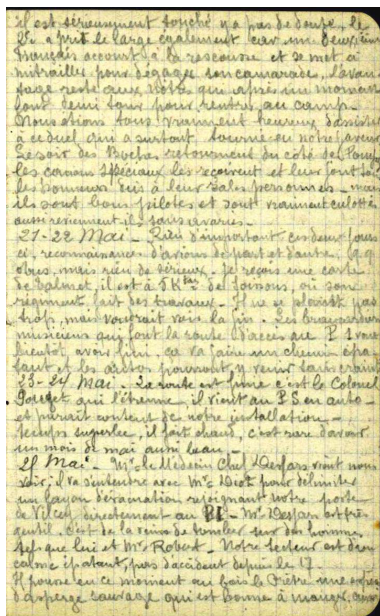 il est sérieusement touché y a pas de doute. le
2e a pris le large également car un deuxième
français accourt à la rescousse et se met à
mitrailler pour dégager son camarade, l'avan
tage reste aux nôtres qui après un moment
font demi tour pour rentrer au camp.
Nous étions tous vraiment heureux d'assister
à ce duel qui a surtout tourné en notre faveur
Le soir des Boches retournent du côté de
les canons spéciaux les reçoivent et leur font
les honneurs dûs à leur sales personnes - mais
ils sont bons pilotes et sont vraiment culottés
aussi reviennent-ils sans avaries -
21-22 Mai - Rien d'important ces deux jours
ci, reconnaissance d'avions de part et d'autre, qq
obus, mais rien de sérieux. Je reçois une carte
de Valmet, il est à 5 Km de Soissons, où son
régiment fait des travaux. Il ne se plaint pas
trop, mais voudrait voir la fin. Les brancardiers
musiciens qui font la route d'accès au P 1 vont
bientôt avoir fini. ça va faire un chemin épa
tant et les autos pourront y venir sans crainte
23-24 Mai - La route est finie c'est le Colonel
Pouget qui l'étrenne, il vient au P.S en auto -
et paraît content de notre installation -
temps superbe, il fait chaud, c'est rare d'avoir
un mois de mai aussi beau -
25 Mai - Mr le Médecin Chef Desfars vient nous
voir, il va s'entendre avec Mr Diot pour délimiter
un layon d'évacuation rejoignant notre poste
de Vilcey directement au P1 - Mr Desfars est très
gentil, c'est de la veine de tomber sur des hommes
tels que lui et Mr Robert - Notre secteur est d'un
calme épatant, pas d'accident depuis le 17 -
Il pousse en ce moment au bois le Prêtre une espèce
d'asperge sauvage qui est bonne à manger,